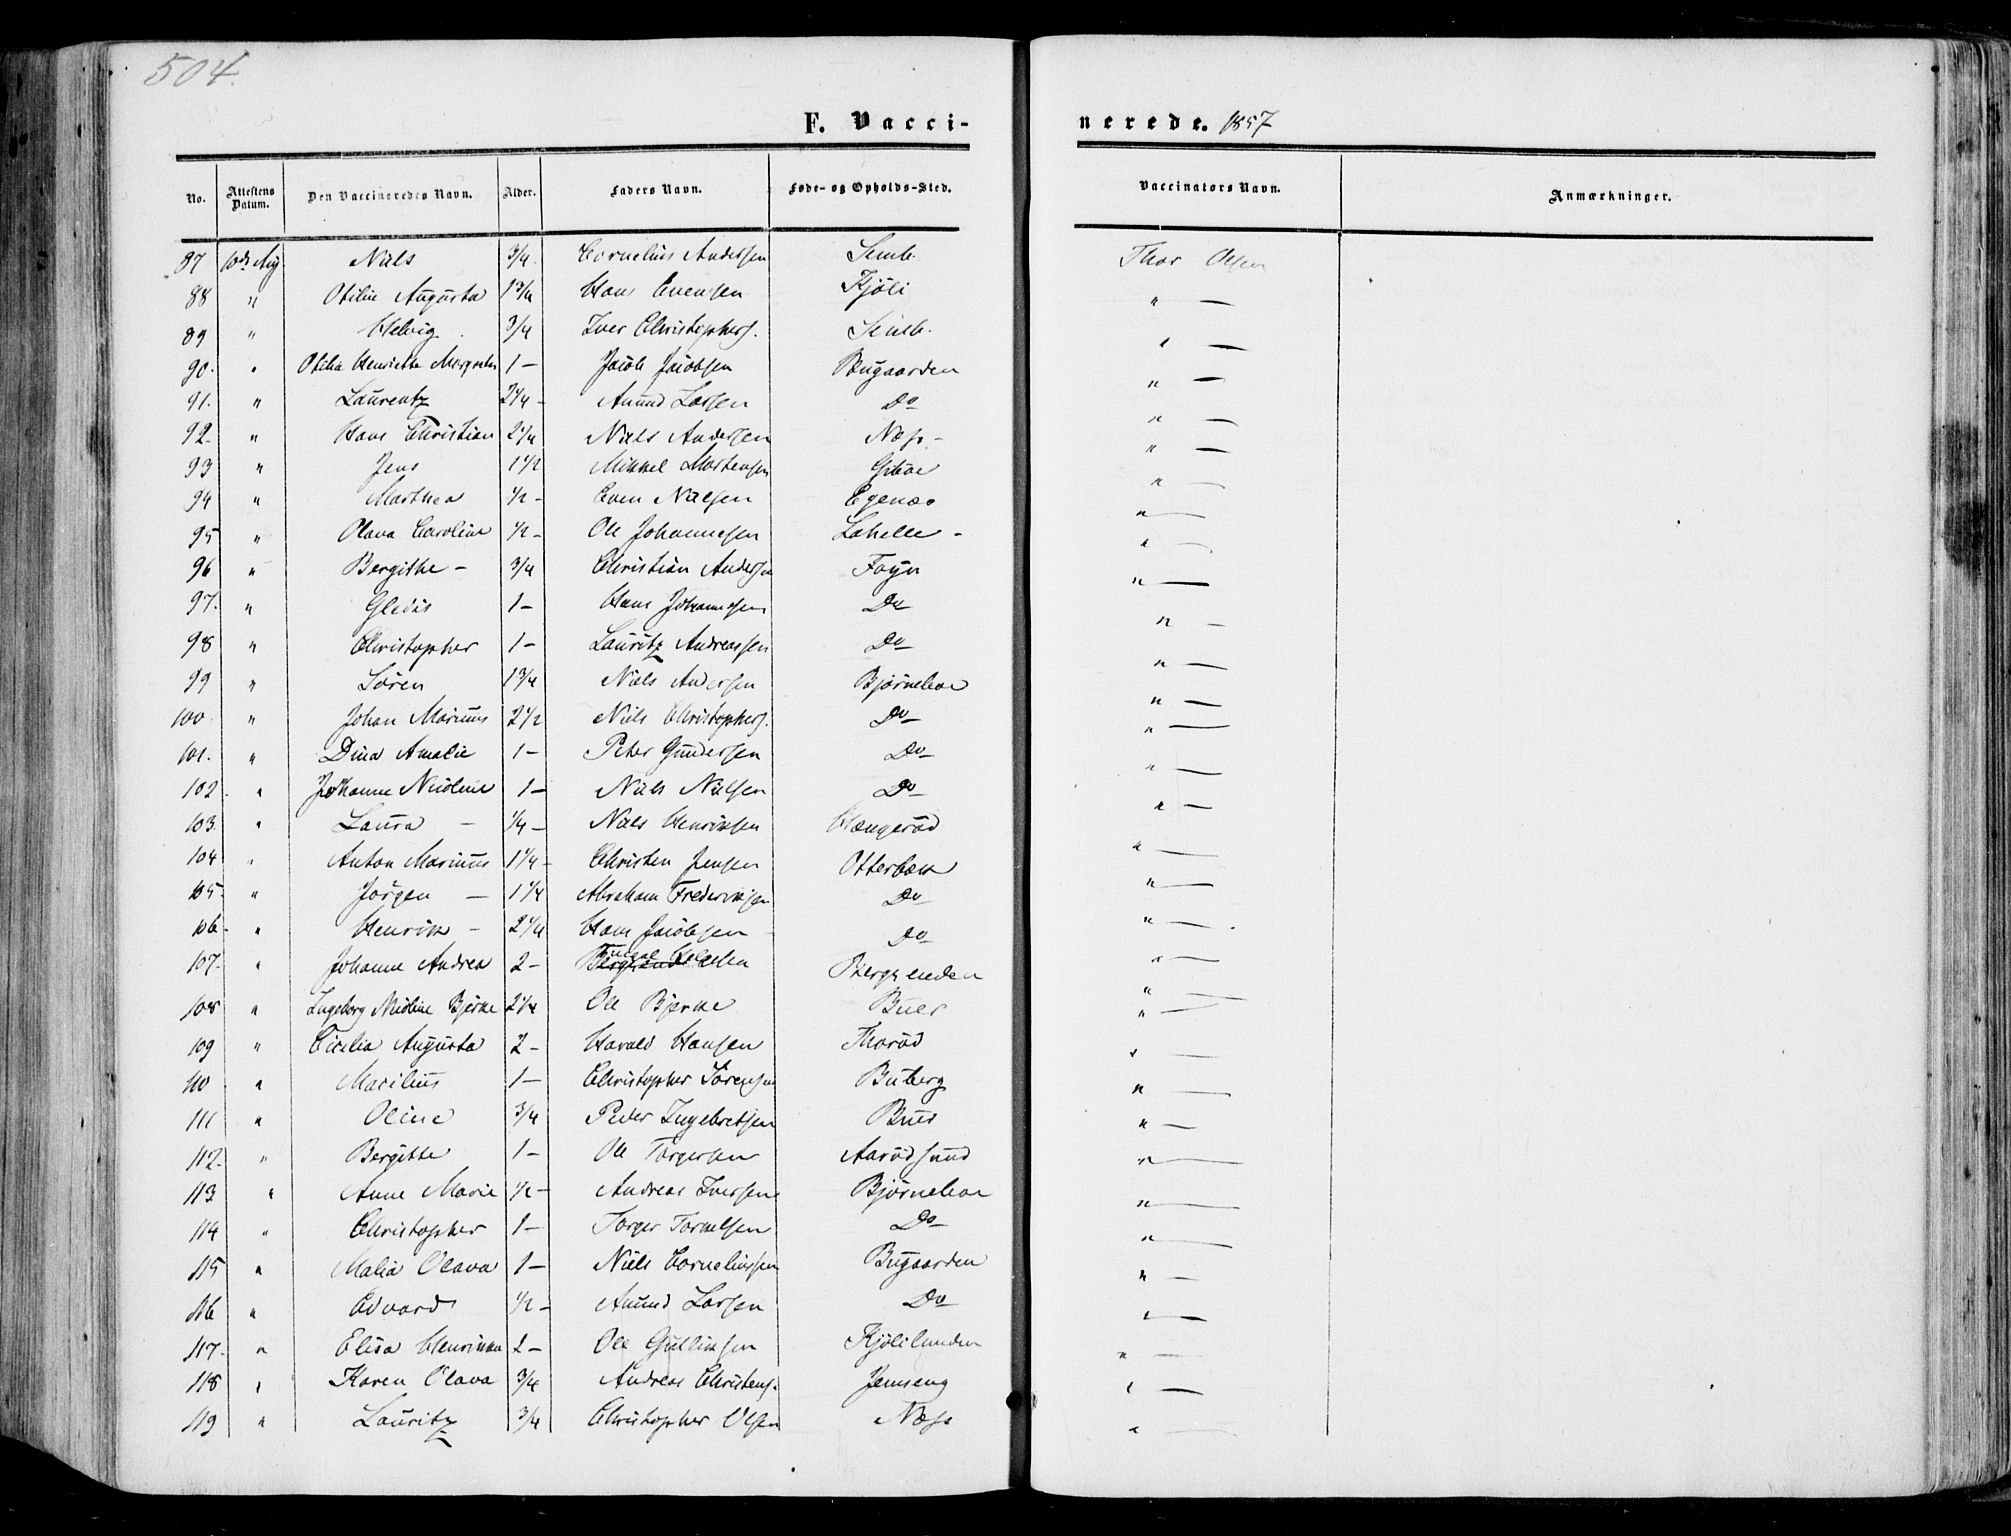 504.
F. Vaccinerede. 1857
No. Attestens Datum. Den Vaccineredes Navn. Alder. Faders Navn. Føde- og Opholds-Sted. Vaccinators Navn. Anmærkninger.
87 10de Aug Niels 3/4 Cornelius Andersen Semb Thor Olsen
88 " Otilie Augusta 1 3/4 Hans Evensen Kjöli " —
89 " Helvig 3/4 Iver Christophers. Semb. " —
90. " Otilia Henriette Margrethe 1 – Jacob Jacobsen Bugaarden " —
91. " Laurentz 2 1/4 – Amund Larsen Do " —
92. " Hans Christian 2 1/4 Niels Andersen Næss – " —
93 " Jens 1 1/2 Mikkel Mortensen Giböe " —
94 " Marthea 1/2 – Even Nielsen Egenæs " —
95 " Olava Caroline 1/2 – Ole Johannesen Lahelle – " —
96 " Bergithe – 3/4 Christian Andersen Foÿn " —
97. " Gledis 1 – Hans Johannesen Do " —
98 " Christopher 1 – Lauritz Andreassen Do " —
99 " Sören 1 3/4 Niels Andersen Björneboe " —
100. " Johan Marinus 2 1/2 Niels Christophers. Do " —
101. " Dina Amalie 1 – Peter Gundersen Do " —
102. " Johanne Nicoline 1 – Niels Nielsen Do " —
103. " Laura – 1/4 – Niels Henriksen Hængeröd " —
104 " Anton Marinus 1 1/4 – Christen Jensen Otterbæk " —
105. " Jörgen – 1 1/4 Abraham Frederiksen Do " —
106. " Henrik – 2 1/4 Hans Jacobsen Do " —
107. " Johanne Andrea 2 – Helgesen Bergsenden " —
108 " Ingeborg Nicoline Bjerke 2 1/4 Ole Bjerke Buer " —
109 " Cicilia Augusta 2 – Harald Hansen Thoröd " —
110 " Marilius 1 – Christopher Sörensen Buberg " —
111 " Oline 3/4 Peder Ingebretsen Buer " —
112. " Bergitte 1 – Ole Torgersen Aarödsund " —
113 " Anne Marie 1/2 – Andreas Iversen Björneboe " —
114 " Christopher 1 – Torger Torkelsen Do " —
115 " Malia Olava 1 – Niels Corneliussen Bugaarden " —
116 " Edvard 1/2 – Amund Larsen Do " —
117. " Elisa Henrikka 2 – Ole Gulliksen Kjölilunden " —
118 " Karen Olava 3/4 Andreas Christens. Jemseng " —
119 " Lauritz 3/4 Christopher Olsen Næss " —